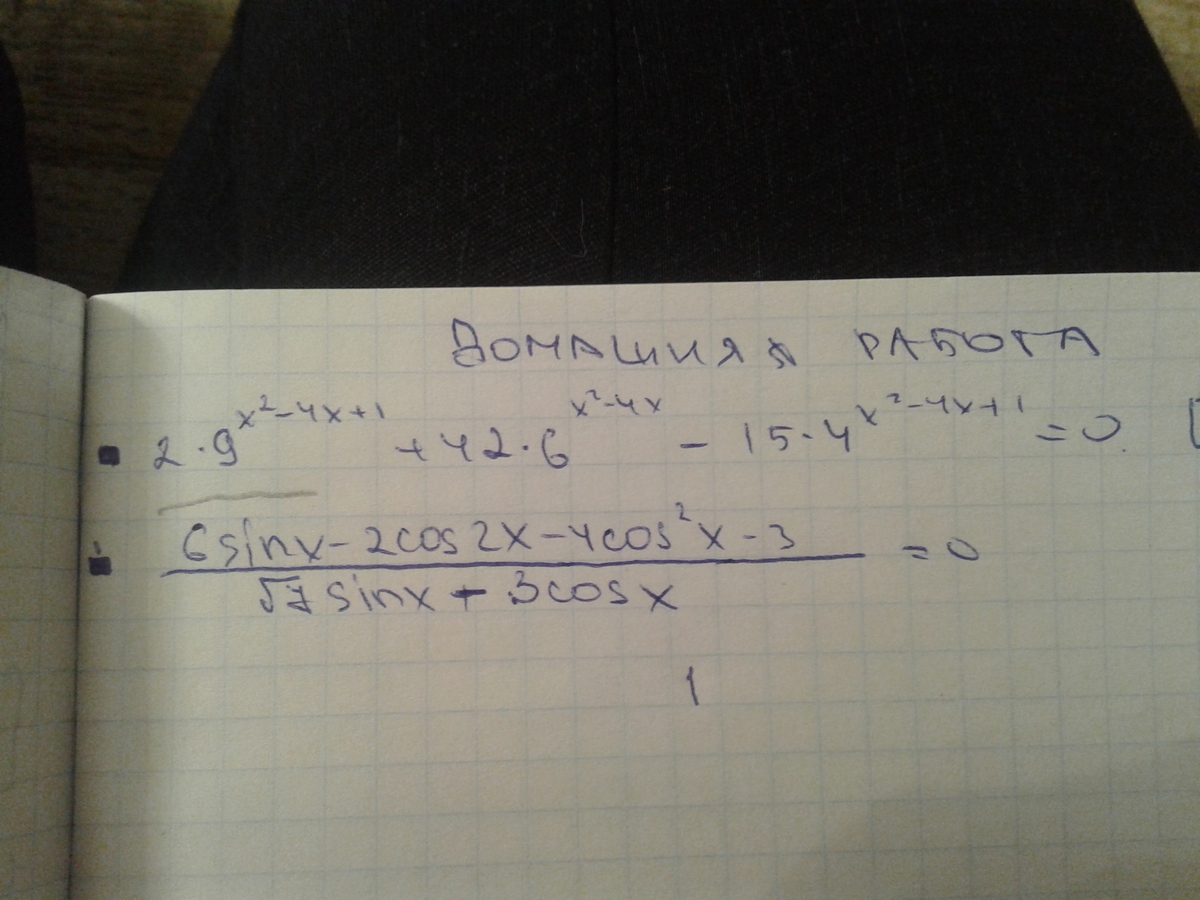 ДОМАШНЯЯ РАБОТА
2·9^{x²-4x+1} + 42·6^{x²-4x} - 15·4^{x²-4x+1} = 0
\frac{6sinx - 2cos2x - 4cos²x - 3}{√7 sinx + 3cosx} = 0